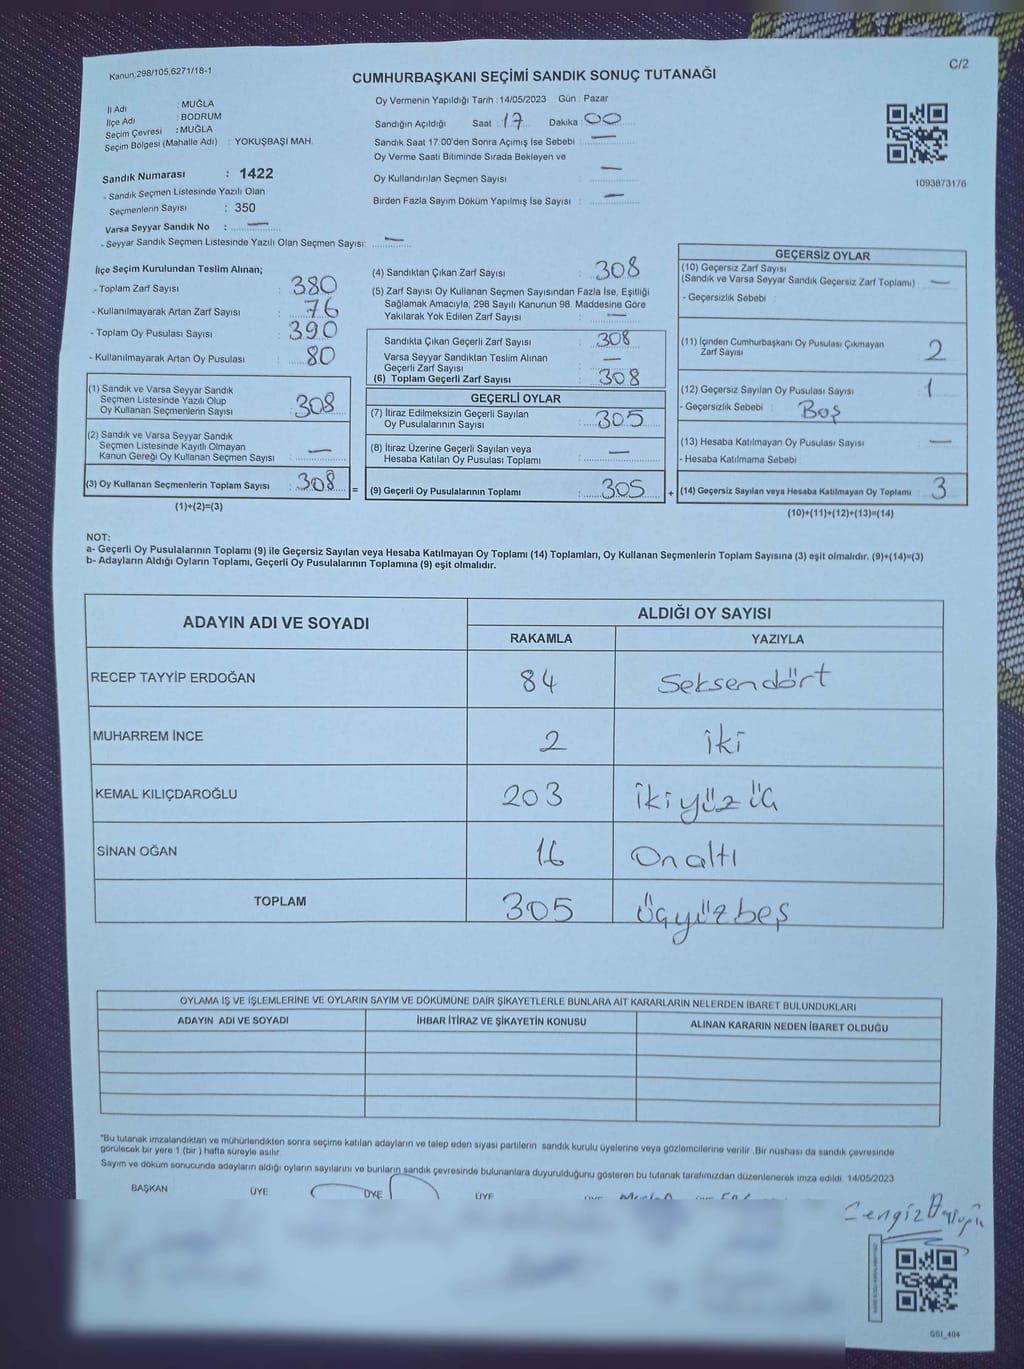 Kanun:298/105,6271/18-1
C/2
CUMHURBAŞKANI SEÇİMİ SANDIK SONUÇ TUTANAĞI
İl Adı : MUĞLA
İlçe Adı : BODRUM
Seçim Çevresi : MUĞLA
Seçim Bölgesi (Mahalle Adı) : YOKUŞBAŞI MAH.
Sandık Numarası : 1422
- Sandık Seçmen Listesinde Yazılı Olan
Seçmenlerin Sayısı : 350
Varsa Seyyar Sandık No : —
- Seyyar Sandık Seçmen Listesinde Yazılı Olan Seçmen Sayısı: —
Oy Vermenin Yapıldığı Tarih : 14/05/2023 Gün : Pazar
Sandığın Açıldığı Saat : 17 Dakika : 00
Sandık Saat 17:00'den Sonra Açımış İse Sebebi : —
Oy Verme Saati Bitiminde Sırada Bekleyen ve
Oy Kullandırılan Seçmen Sayısı : —
Birden Fazla Sayım Döküm Yapılmış İse Sayısı : —
1093873176
İlçe Seçim Kurulundan Teslim Alınan;
- Toplam Zarf Sayısı : 380
- Kullanılmayarak Artan Zarf Sayısı : 76
- Toplam Oy Pusulası Sayısı : 390
- Kullanılmayarak Artan Oy Pusulası : 80
(1) Sandık ve Varsa Seyyar Sandık
Seçmen Listesinde Yazılı Olup
Oy Kullanan Seçmenlerin Sayısı : 308
(2) Sandık ve Varsa Seyyar Sandık
Seçmen Listesinde Kayıtlı Olmayan
Kanun Gereği Oy Kullanan Seçmen Sayısı : —
(3) Oy Kullanan Seçmenlerin Toplam Sayısı : 308 =
(1)+(2)=(3)
(4) Sandıktan Çıkan Zarf Sayısı : 308
(5) Zarf Sayısı Oy Kullanan Seçmen Sayısından Fazla İse, Eşitliği
Sağlamak Amacıyla, 298 Sayılı Kanunun 98. Maddesine Göre
Yakılarak Yok Edilen Zarf Sayısı : —
Sandıkta Çıkan Geçerli Zarf Sayısı : 308
Varsa Seyyar Sandıktan Teslim Alınan
Geçerli Zarf Sayısı : —
(6) Toplam Geçerli Zarf Sayısı : 308
GEÇERLİ OYLAR
(7) İtiraz Edilmeksizin Geçerli Sayılan
Oy Pusulalarının Sayısı : 305
(8) İtiraz Üzerine Geçerli Sayılan veya
Hesaba Katılan Oy Pusulası Toplamı : —
(9) Geçerli Oy Pusulalarının Toplamı : 305 +
GEÇERSİZ OYLAR
(10) Geçersiz Zarf Sayısı
(Sandık ve Varsa Seyyar Sandık Geçersiz Zarf Toplamı) —
- Geçersizlik Sebebi :
(11) İçinden Cumhurbaşkanı Oy Pusulası Çıkmayan
Zarf Sayısı 2
(12) Geçersiz Sayılan Oy Pusulası Sayısı 1
- Geçersizlik Sebebi : Boş
(13) Hesaba Katılmayan Oy Pusulası Sayısı —
- Hesaba Katılmama Sebebi :
(14) Geçersiz Sayılan veya Hesaba Katılmayan Oy Toplamı 3
(10)+(11)+(12)+(13)=(14)
NOT:
a- Geçerli Oy Pusulalarının Toplamı (9) ile Geçersiz Sayılan veya Hesaba Katılmayan Oy Toplamı (14) Toplamları, Oy Kullanan Seçmenlerin Toplam Sayısına (3) eşit olmalıdır. (9)+(14)=(3)
b- Adayların Aldığı Oyların Toplamı, Geçerli Oy Pusulalarının Toplamına (9) eşit olmalıdır.
ADAYIN ADI VE SOYADI ALDIĞI OY SAYISI
RAKAMLA YAZIYLA
RECEP TAYYİP ERDOĞAN 84 Seksendört
MUHARREM İNCE 2 iki
KEMAL KILIÇDAROĞLU 203 ikiyüzüç
SİNAN OĞAN 16 Onaltı
TOPLAM 305 üçyüzbeş
OYLAMA İŞ VE İŞLEMLERİNE VE OYLARIN SAYIM VE DÖKÜMÜNE DAİR ŞİKAYETLERLE BUNLARA AİT KARARLARIN NELERDEN İBARET BULUNDUKLARI
ADAYIN ADI VE SOYADI İHBAR İTİRAZ VE ŞİKAYETİN KONUSU ALINAN KARARIN NEDEN İBARET OLDUĞU
"Bu tutanak imzalandıktan ve mühürlendikten sonra seçime katılan adayların ve talep eden siyasi partilerin sandık kurulu üyelerine veya gözlemcilerine verilir .Bir nüshası da sandık çevresinde
görülecek bir yere 1 (bir ) hafta süreyle asılır.
Sayım ve döküm sonucunda adayların aldığı oyların sayılarını ve bunların sandık çevresinde bulunanlara duyurulduğunu gösteren bu tutanak tarafımızdan düzenlenerek imza edildi. 14/05/2023
BAŞKAN ÜYE ÜYE ÜYE
Cengiz
GSI_404